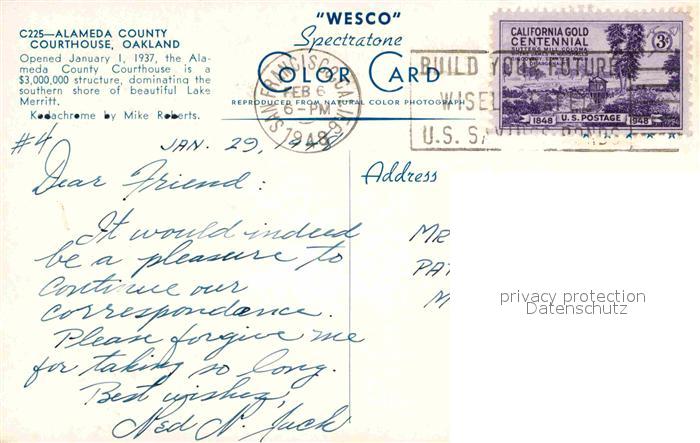 C225—ALAMEDA COUNTY
COURTHOUSE, OAKLAND
Opened January 1, 1937, the Ala-
meda County Courthouse is a
$3,000,000 structure, dominating the
southern shore of beautiful Lake
Merritt.
Kodachrome by Mike Roberts.
"WESCO"
Spectratone
COLOR CARD
REPRODUCED FROM NATURAL COLOR PHOTOGRAPH
SAN FRANCISCO, CALIF.
FEB 6
6-PM
1948
BUILD YOUR FUTURE
WISELY
U.S. SAVINGS BONDS
CALIFORNIA GOLD
CENTENNIAL
3¢
SUTTER'S MILL, COLOMA
1848 U.S. POSTAGE 1948
#4
JAN. 29, 1948
Dear Friend:
It would indeed
be a pleasure to
continue our
correspondance.
Please forgive me
for taking so long.
Best wishes,
Ned N. Jack
Address
MR
PAT
M
privacy protection
Datenschutz